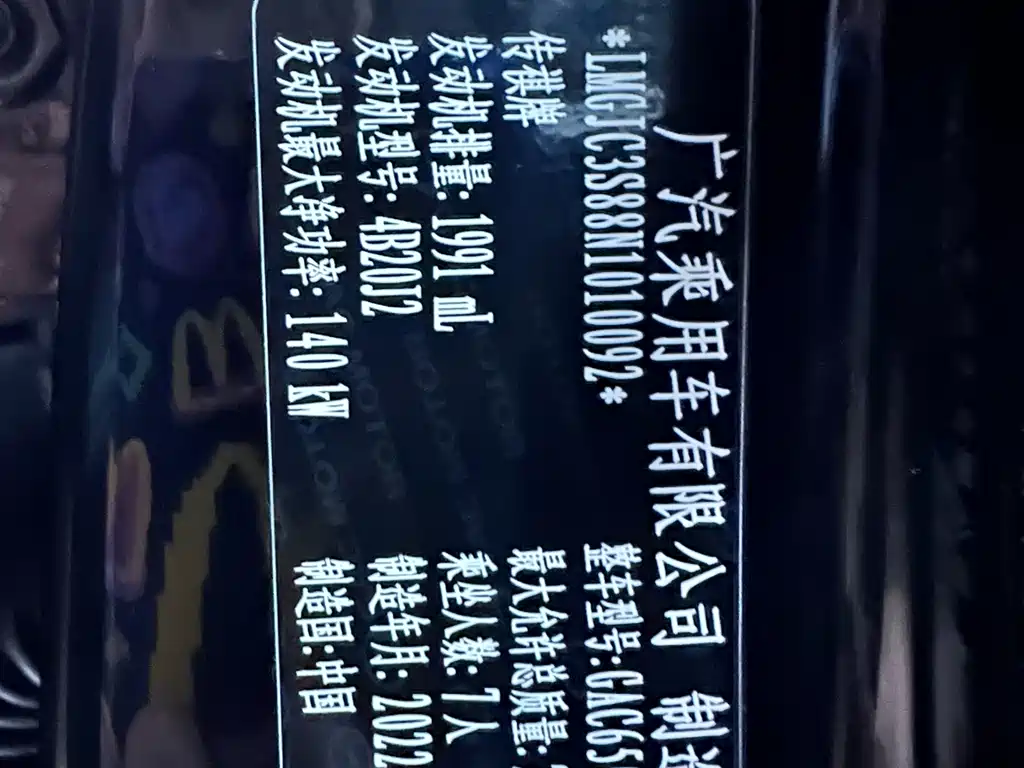 广汽乘用车有限公司 制造
*LMGJC3S88N1010092* 整车型号:GAC65
传祺牌 最大允许总质量:
发动机排量: 1991 mL 乘坐人数: 7人
发动机型号: 4B20J2 制造年月: 2022
发动机最大净功率: 140 kW 制造国:中国